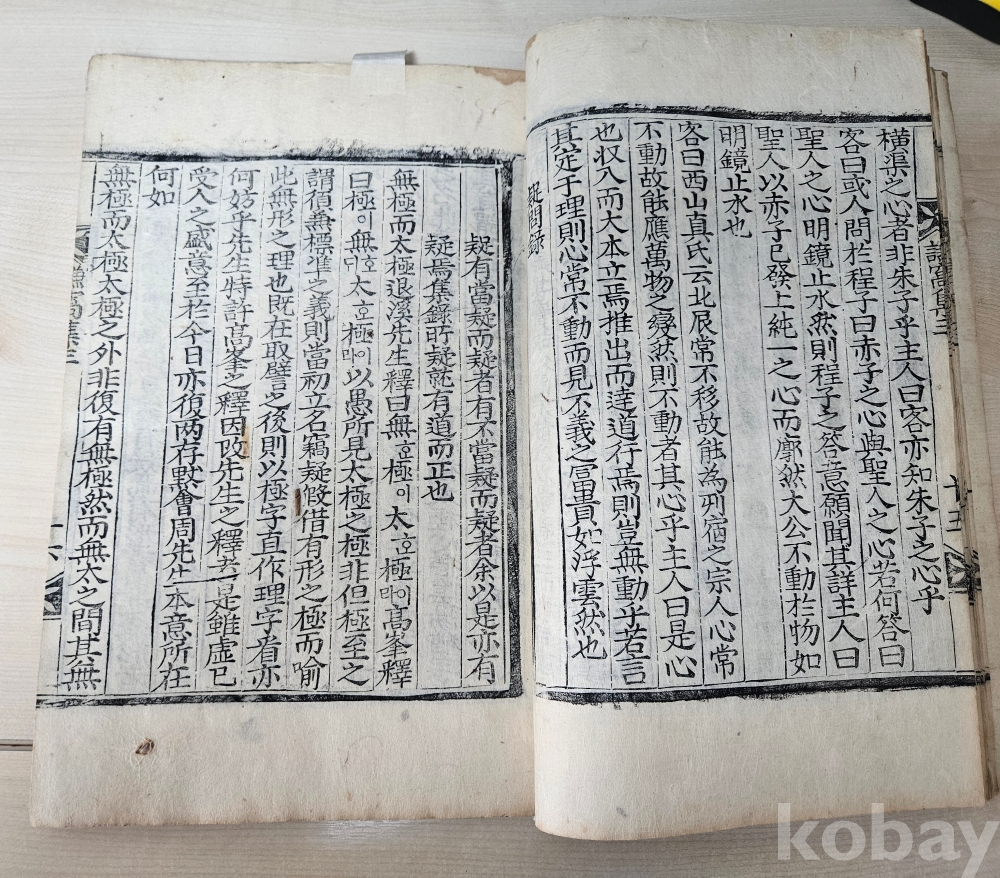 橫渠之心者非朱子乎主人曰客亦知朱子之心乎
客曰或人問於程子曰赤子之心與聖人之心若何答曰
聖人之心明鏡止水然則程子之答意願聞其詳主人曰
聖人以赤子已發上純一之心而廓然大公不動於物如
明鏡止水也
客曰西山真氏云北辰常不移故能為列宿之宗人心常
不動故能應萬物之變然則不動者其心乎主人曰是心
也收入而大本立焉推出而達道行焉則豈無動乎若言
其定于理則心常不動而見不義之富貴如浮雲然也
疑問錄
疑有當疑而疑者有不當疑而疑者余以是亦有
疑焉集錄所疑就有道而正也
無極而太極退溪先生釋曰無호極이太호極마이高峯釋
曰極이無 太호極마이以愚所見太極之極非但極至之
謂須兼標準之義則當初立名竊疑假借有形之極而喻
此無形之理也旣在取譬之後則以極字直作理字看亦
何妨乎先生特許高峯之釋因改先生之釋者一是雖虛已
受人之盛意至於今日亦復两存默會周先生本意所在
何如
無極而太極太極之外非復有無極然而無太之間其無
集三
十六